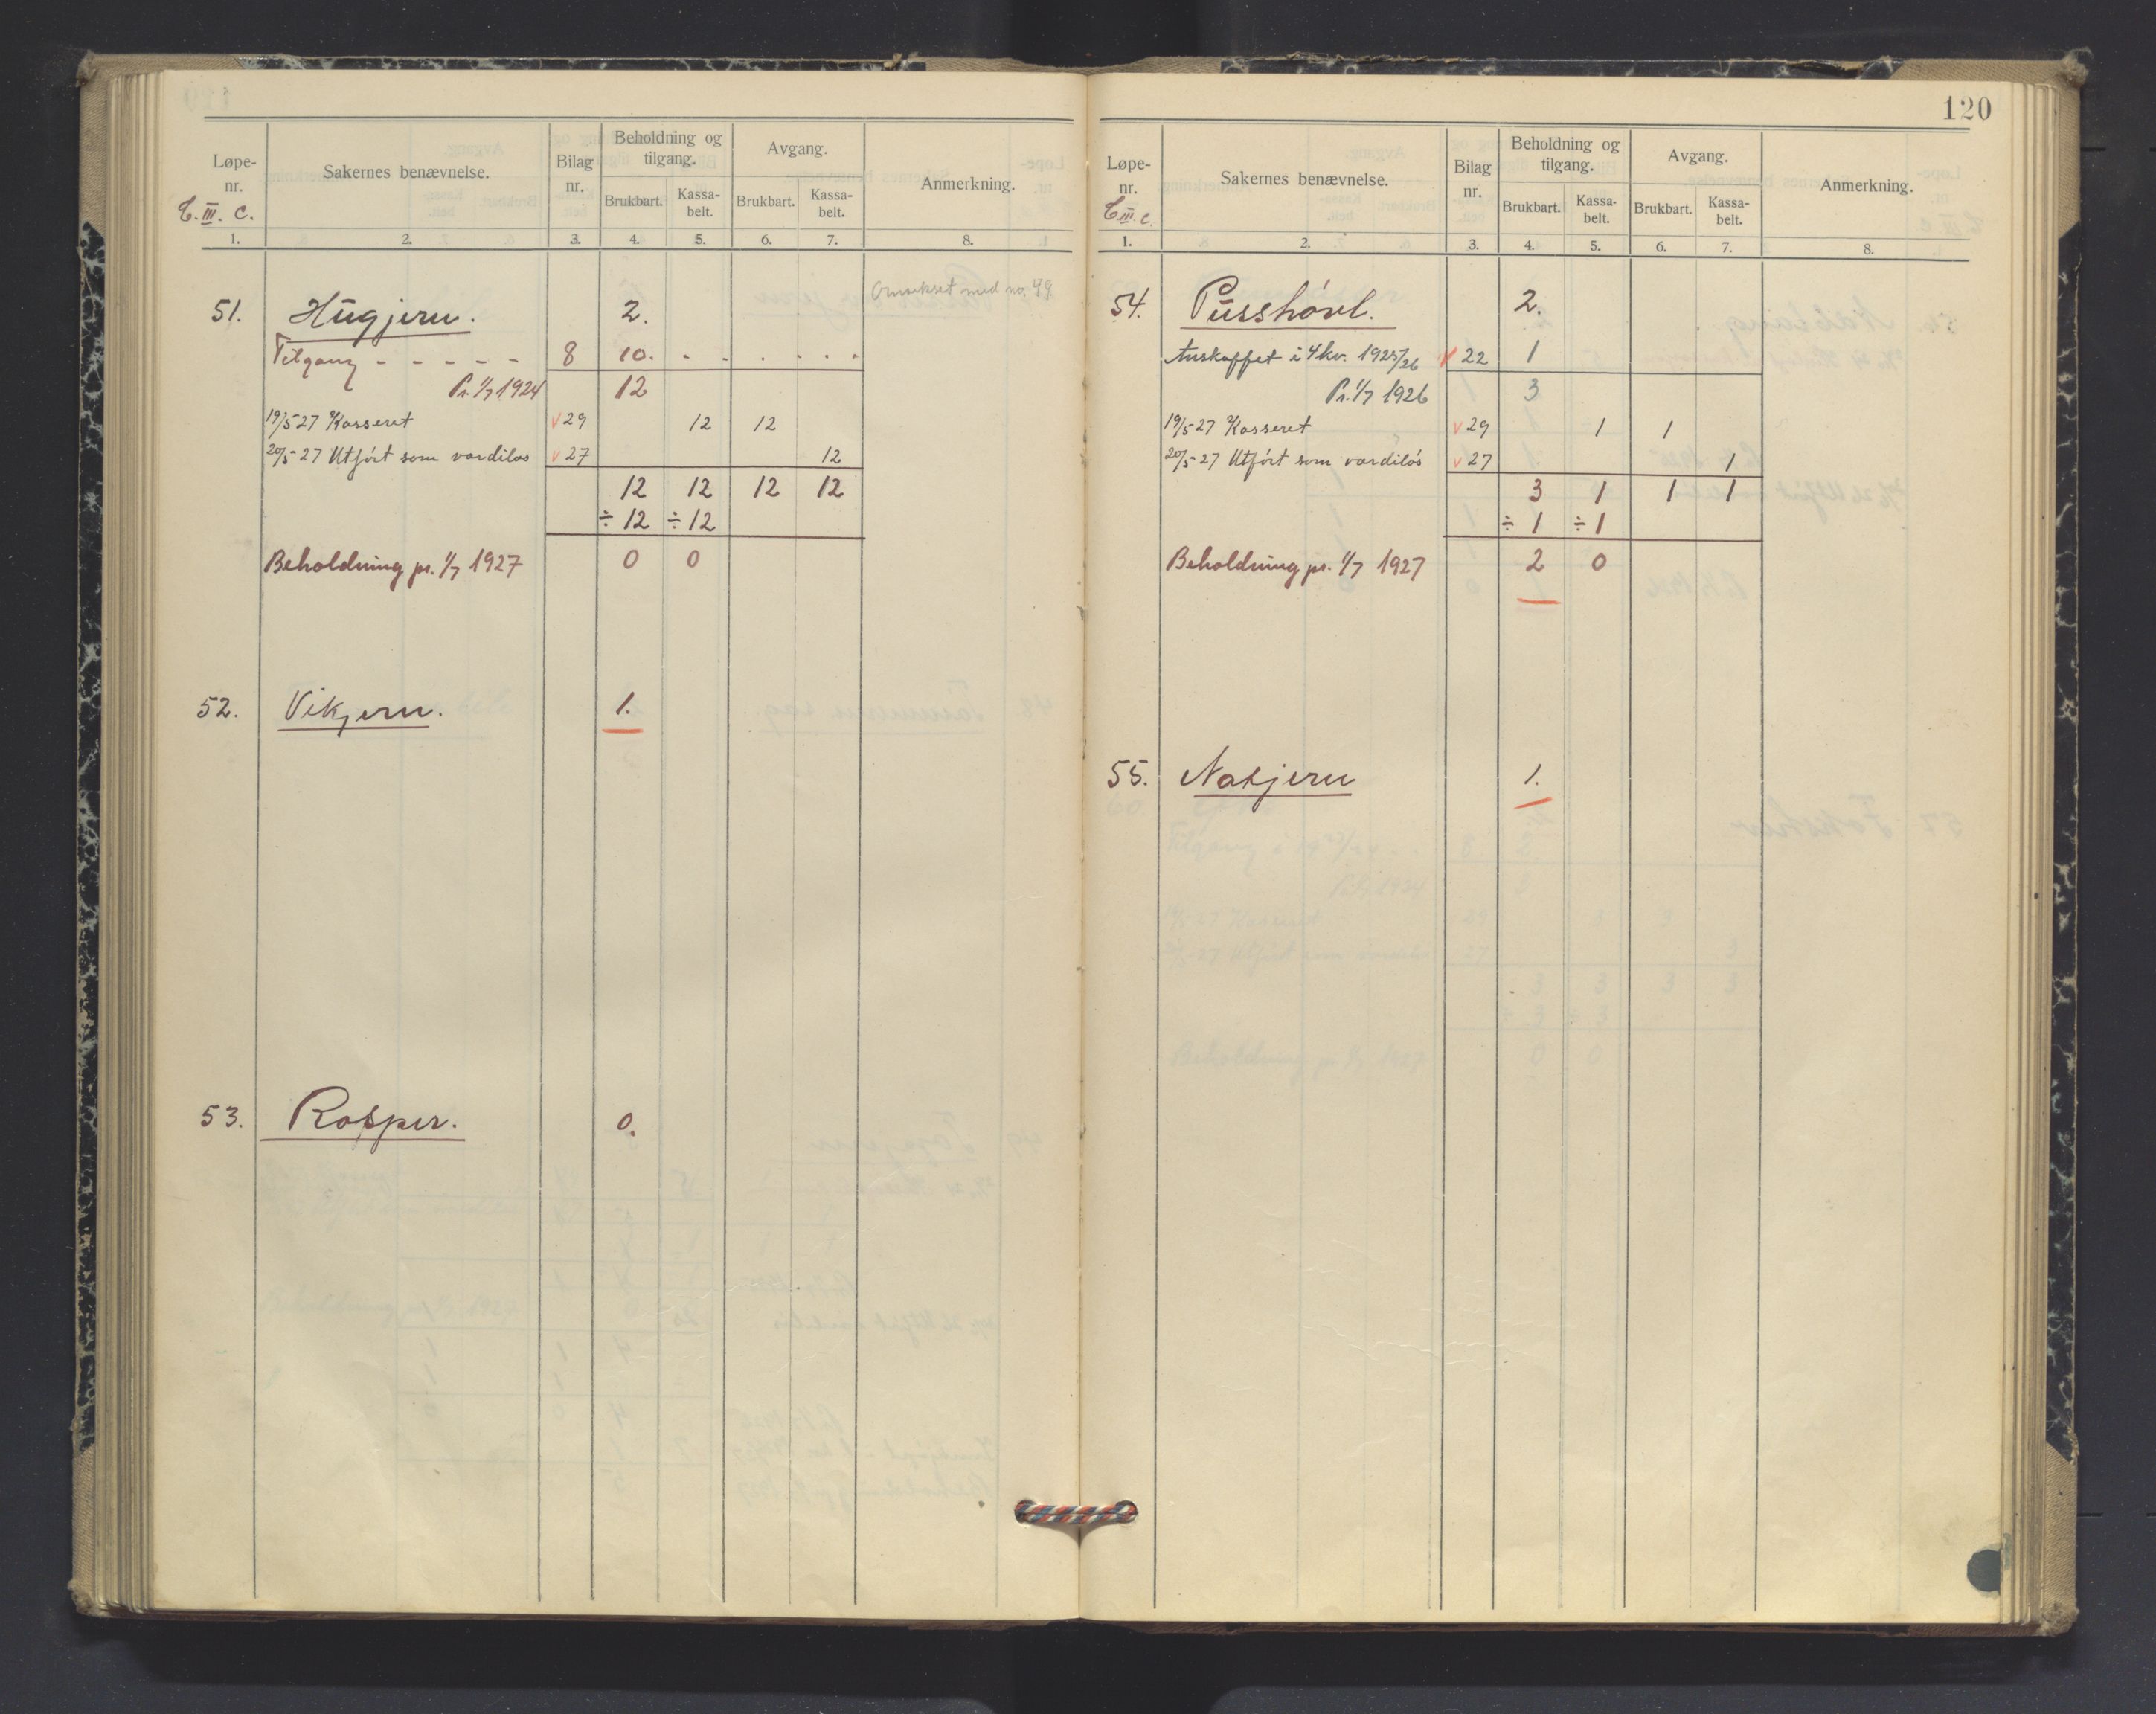 Løpe-nr. | Sakernes benævnelse. | Bilag nr. | Beholdning og tilgang. | Avgang. | Anmerkning.
C. III. c. | Brukbart. | Kassa-belt. | Brukbart. | Kassa-belt.
1. | 2. | 3. | 4. | 5. | 6. | 7. | 8.
51. Hugjern. 2. med no. 49.
Tilgang - - - - - 8 10. - - . . . .
Pr. 1/7 1924 12
19/5 27 Kasseret v 29 12 12
20/5-27 Utført som vardiløs v 27 12
12 12 12 12
÷ 12 ÷ 12
Beholdning pr. 1/7 1927 0 0
52. Vikjern. 1.
53. Rasper. 0.
120
Løpe-nr. | Sakernes benævnelse. | Bilag nr. | Beholdning og tilgang. | Avgang. | Anmerkning.
C III c. | Brukbart. | Kassa-belt. | Brukbart. | Kassa-belt.
1. | 2. | 3. | 4. | 5. | 6. | 7. | 8.
54. Pusshøvl. 2.
Anskaffet i 4 kv. 1925/26 v 22 1
Pr. 1/7 1926 3
19/5-27 Kasseret v 29 1 1
20/5-27 Utført som vardiløs v 27 1
3 1 1 1
÷ 1 ÷ 1
Beholdning pr. 1/7 1927 2 0
55. Natjern 1.